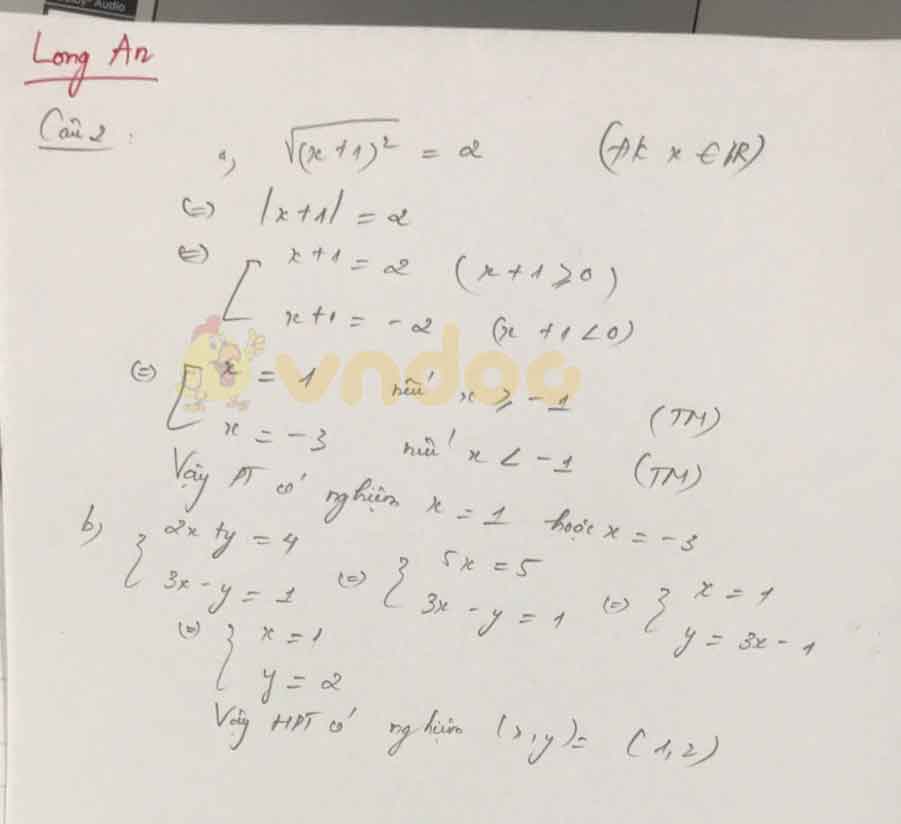 Audio
Long An
Câu 2 :
a, √(x+1)² = 2 (ĐK x ∈ IR)
(=) |x+1| = 2
(=) [ x+1 = 2 (x+1 ≥ 0)
x+1 = -2 (x+1 < 0)
(=) [ x = 1 nếu x ≥ -1 (TM)
x = -3 nếu x < -1 (TM)
vndoc
Vậy PT có nghiệm x = 1 hoặc x = -3
b) { 2x+y = 4
3x-y = 1 (=) { 5x = 5
3x-y = 1 (=) { x = 1
y = 3x-1
(=) { x = 1
y = 2
Vậy HPT có nghiệm (x,y)= (1,2)